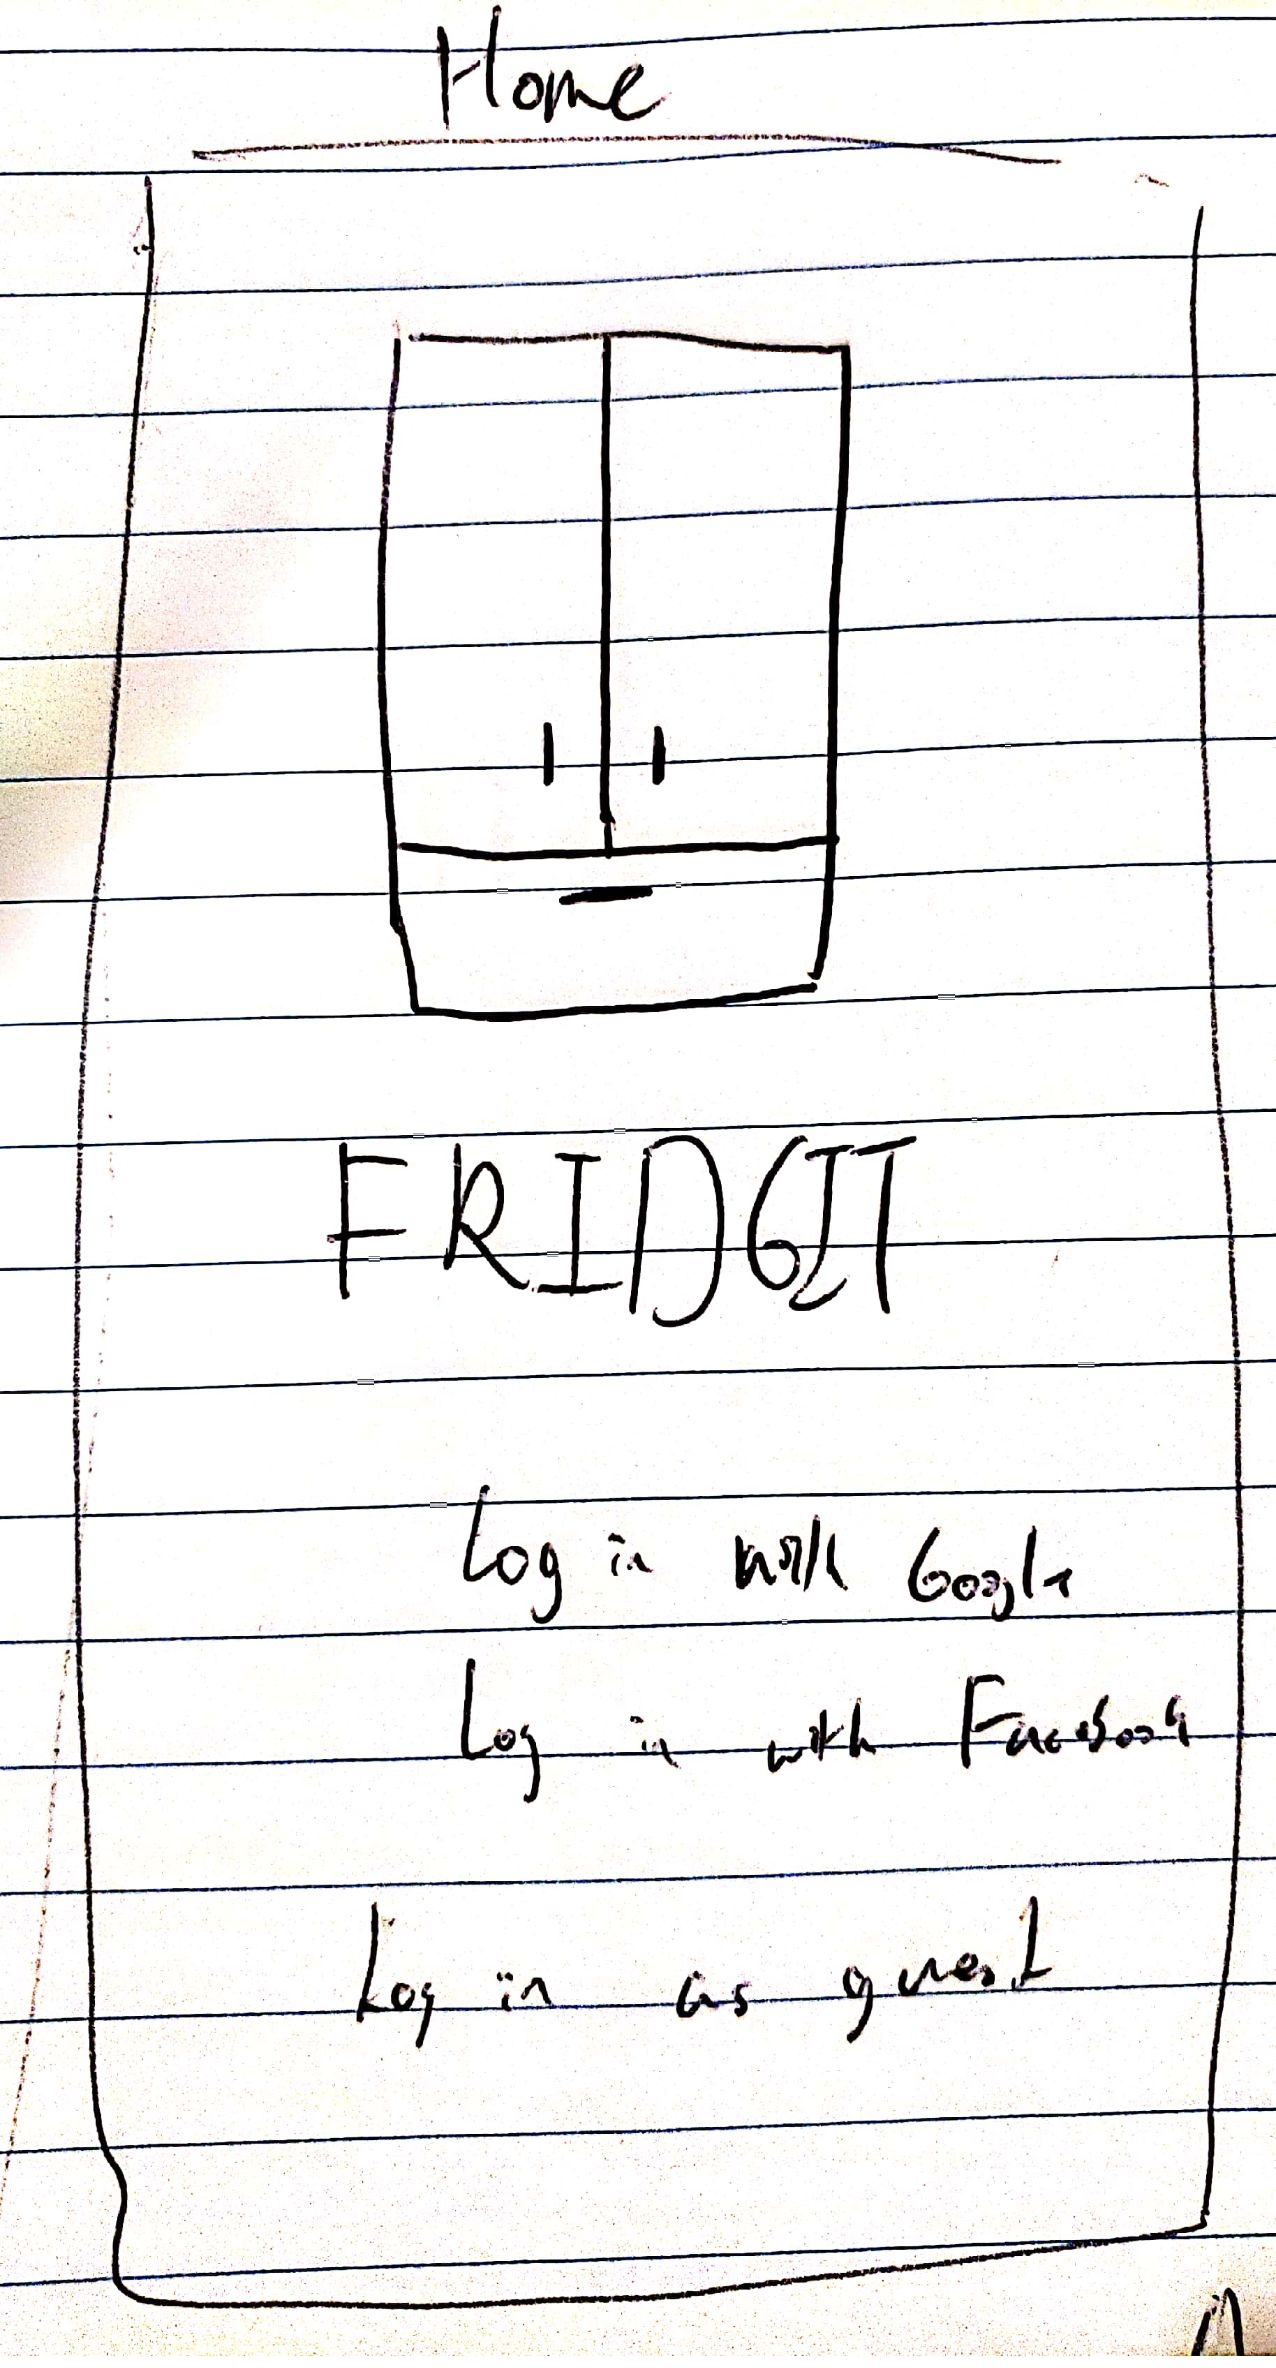 Home
FRIDGIT
Log in with Google
Log in with Facebook
Log in as guest